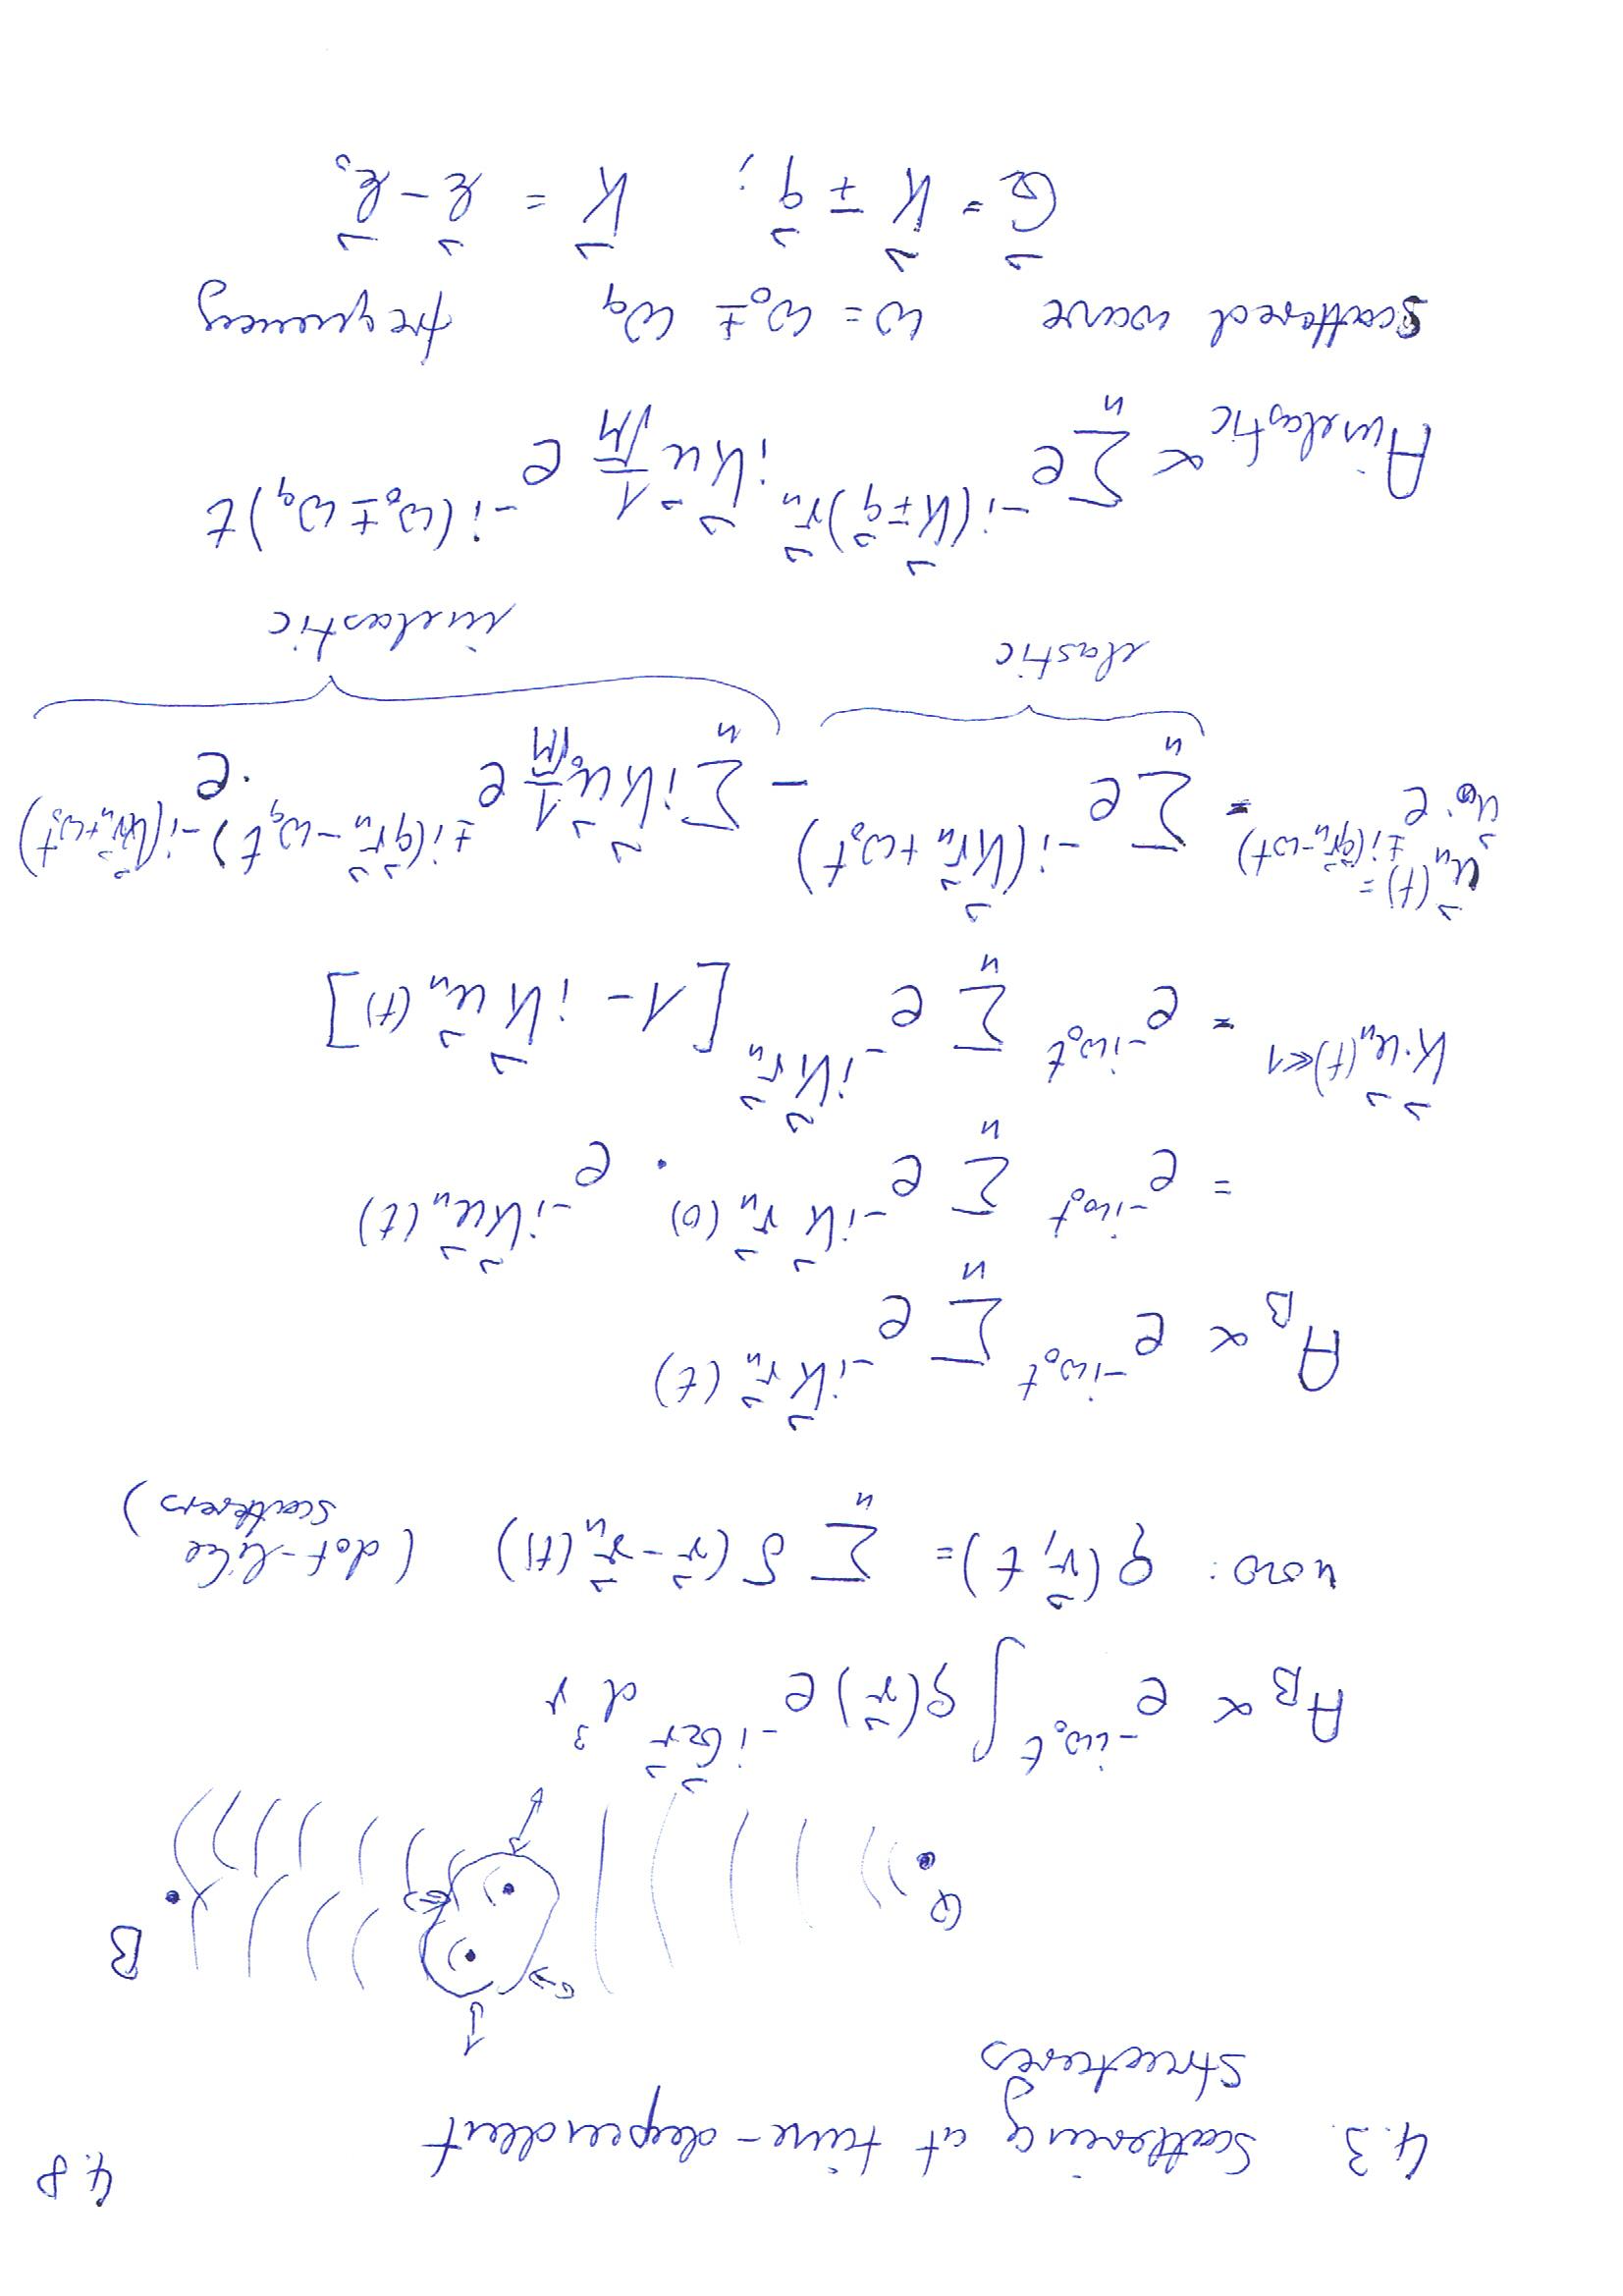 4.8
4.3. Scattering at time-dependent
structures
Q B
A_B ∝ e^{-iω₀t} ∫ ρ(r⃗) e^{-iG⃗r⃗} d³r
now: ρ(r⃗, t) = Σ_n δ(r⃗ - r⃗_n(t)) (dot-like
scatterers)
A_B ∝ e^{-iω₀t} Σ_n e^{-iK⃗r⃗_n(t)}
= e^{-iω₀t} Σ_n e^{-iK⃗r⃗_n(0)} · e^{-iK⃗u⃗_n(t)}
K⃗·u⃗_n(t)≪1 = e^{-iω₀t} Σ_n e^{-iK⃗r⃗_n} [1 - iK⃗u⃗_n(t)]
u⃗_n(t) =
u⃗₀·e^{±i(q⃗r⃗_n-ωt)} = Σ_n e^{-i(K⃗r⃗_n+ω₀t)} - Σ_n iK⃗u⃗₀ 1/√M e^{±i(q⃗r⃗_n-ω_q t)} · e^{-i(K⃗r⃗_n+ω₀t)}
elastic inelastic
A_inelastic ∝ Σ_n e^{-i(K⃗∓q⃗)r⃗_n} iK⃗u⃗ 1/√M e^{-i(ω₀±ω_q)t}
scattered wave ω = ω₀ ± ω_q frequency
G⃗ = K⃗ ∓ q⃗; K⃗ = k⃗ - k⃗₀